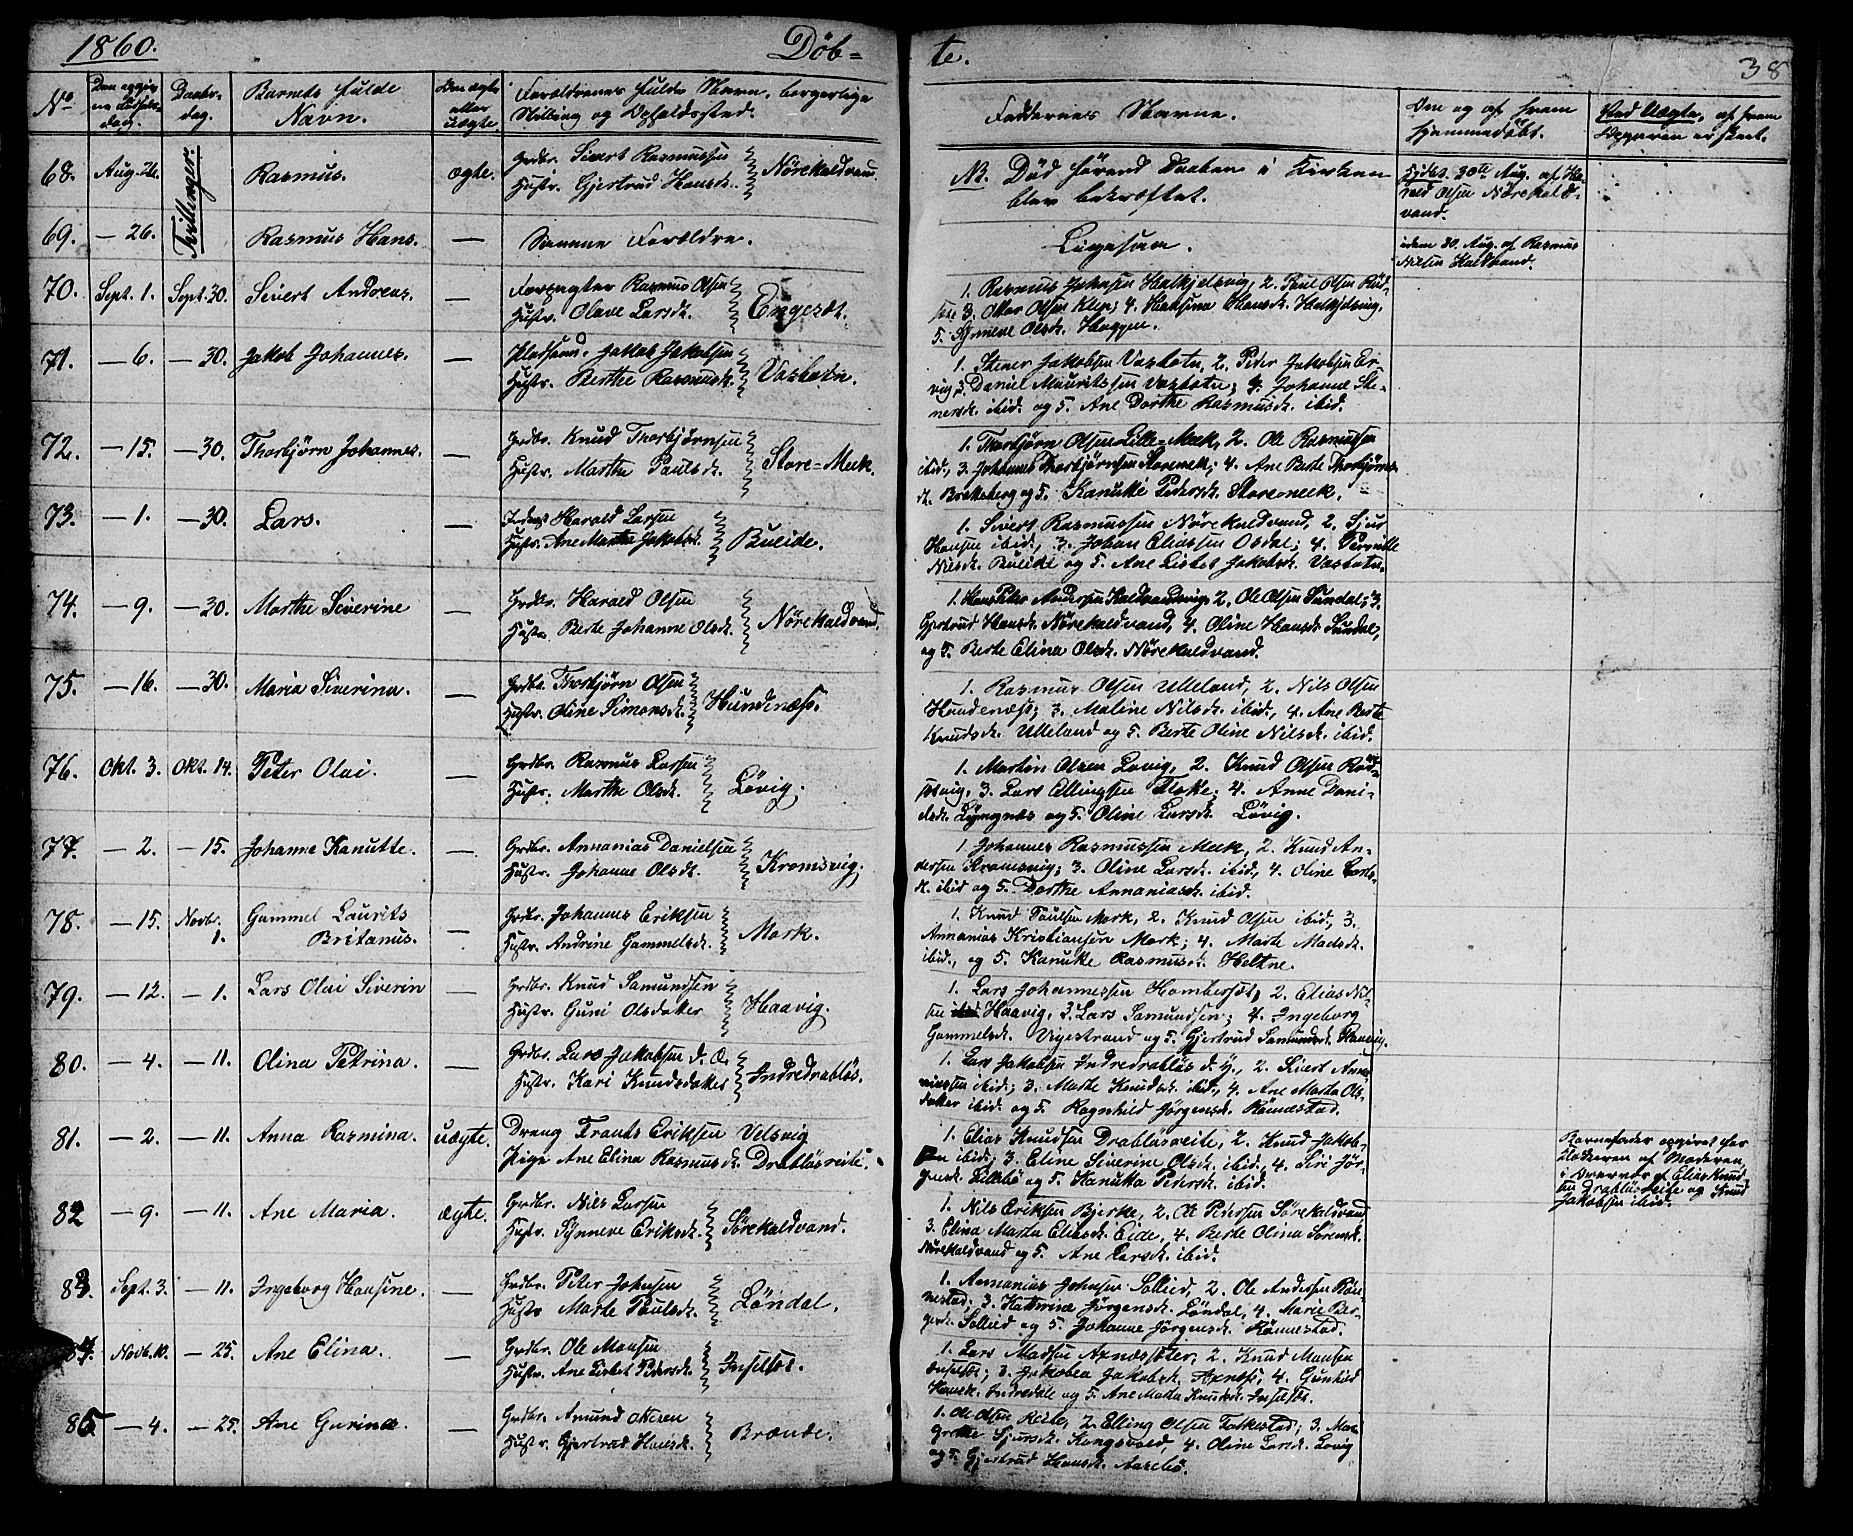 1860.
Døb=
te.
38
No
Daabs-
dag.
Barnets fulde
Navn.
Om ægte
eller
uægte.
Forældrenes fulde Navn, borgerlige
Stilling og Opholdssted.
Faddernes Navne.
Om og af hvem
hjemmedøbt.
Ved Uægte, af hvem
Opgaven er skeet.
68. Aug. 26. Tvillinger. Rasmus. ægte. Grdbr. Sivert Rasmussen
Hustr. Gjertrud Hansd. Nørekaldvand.
NB. Død førend Daaben i Kirken
blev bekræftet.
30te Aug. af Ha-
rald Olsen Nørekald-
vand.
69. — 26. Rasmus Hans. — Samme Forældre.
Ligesaa.
idem 30. Aug. af Rasmus
Nilsen Kaldvand.
70. Sept. 1. Sept. 30. Sivert Andreas. — Forpagter Rasmus Olsen
Hustr. Olave Larsd. Engeset.
1. Rasmus Johnsen Halkjelsvig, 2. Poul Olsen
3. Olsen Klep; 4. Hansina Hansd. Halkjelsvig,
5. Synneve Olsd. Haggen.
71. — 6. — 30. Jakob Johannes. — Pladsmd. Jakob Jakobsen
Hustr. Berthe Rasmusd. Vastøtn.
1. Stener Jakobsen Vastøtn, 2. Peder Jakobsen Er-
vig, 3. Daniel Mauritssen Vastøtn; 4. Johanne Ste-
nersd. ibid. og 5. Ane Dorthe Rasmusd. ibid.
72. — 15. — 30. Thorbjørn Johannes. — Grdbr. Knud Thorbjørnsen
Hustr. Marthe Paulsd. Store=Meek.
1. Thorbjørn Olsen Lille=Meek, 2. Ole Rasmussen
ibid., 3. Johannes Thorbjørnsen Storemeek; 4. Ane Berte Thorbjørns-
d. Brekeberg og 5. Kanutte Pedersd. Storemeek.
73. — 1. — 30. Lars. — Harald Larsen
Hustr. Ane Martha Jakobsd. Bueide.
1. Sivert Rasmussen Nørekaldvand, 2. Sjur
Hansen ibid., 3. Johan Eliassen Osdal; 4. Pernille
Nilsd. Bueide og 5. Ane Lisbet Jakobsd. Vastøtn.
74. — 9. — 30. Marthe Siverine — Grdbr. Harald Olsen
Hustr. Berte Johanne Olsd. Nørekaldvand.
1. Hans Peter Andersen Kaldvandsvig, 2. Ole Olsen Sundal; 3.
Gjertrud Hansd. Nørekaldvand, 4. Oline Hansd. Sundal,
og 5. Berte Elina Olsd. Nørekaldvand.
75. — 16. — 30. Maria Siverina. — Grdbr. Thorbjørn Olsen
Hustr. Oline Simonsd. Hundenæss.
1. Rasmus Olsen Ulleland, 2. Nils Olsen
Hundenæs; 3. Maline Nilsd. ibid., 4. Ane Berte
Knudsd. Ulleland og 5. Berte Oline Nilsd. ibid.
76. Okt. 3. Okt. 14. Peter Olai. — Grdbr. Rasmus Larsen
Hustr. Marthe Olsd. Løvig.
1. Martin Olsen Lovig, 2. Knud Olsen Rød-
setvig, 3. Lars Ellingsen Floke; 4. Anne Dani-
elsd. Lyngnes og 5. Oline Larsd. Løvig.
77. — 2. — 15. Johanne Kanutte. — Grdbr. Annanias Danielsen
Hustr. Johanne Olsd. Kromsvig.
1. Johannes Rasmussen Meek, 2. Knud An-
dersen Kromsvig; 3. Oline Larsd. ibid., 4. Oline Larss-
d. ibid og 5. Dorthe Annaniasd. ibid.
78. — 15. Novbr. 1. Gammel Laurits
Britanus. — Grdbr. Johannes Eriksen
Hustr. Andrine Gammelsd. Mork.
1. Knud Poulsen Mork, 2. Knud Olsen ibid., 3.
Annanias Kristiansen Mork; 4. Marte Madsd.
ibid., og 5. Kanutte Rasmusd. Heltne.
79. — 12. — 1. Lars Olai Siverin — Grdbr. Knud Samundsen
Hustr. Guni Olsdatter Haavig.
1. Lars Johannessen Homberset, 2. Elias Nil-
sen Haavig, 3. Lars Samundsen; 4. Ingeborg
Gammelsd. Vigestrand og 5. Gjertrud Samundsd. Haavig.
80. — 4. — 11. Olina Petrina. — Grdbr. Lars Jakobsen d. Æ.
Hustr. Kari Knudsdatter Indredrabløs.
1. Lars Jakobsen Indredrabløs d. Y., 2. Sivert Anna-
niassen ibid; 3. Marte Knudsd. ibid., 4. Ane Marta Ols-
datter ibid. og 5. Ragnhild Jørgensd. Rønnestad.
81. — 2. — 11. Anna Rasmina. uægte. Dreng Frants Eriksen Velsvig
Pige Ane Elina Rasmusd. Drabløsreite.
1. Elias Knudsen Drabløsreite, 2. Knud Jakob-
sen ibid; 3. Eline Siverine Olsd. ibid., 4. Siri Jør-
gensd. Lillebø og 5. Kanutta Pedersd. ibid.
Barnefader opgivet for
Klokkeren af Moderen,
i Overvær af Elias Knud-
sen Drabløsreite og Knud
Jakobsen ibid.
82 — 9. — 11. Ane Maria. ægte. Grdbr. Nils Larsen
Hustr. Synneve Eriksd. Sørekaldvand.
1. Nils Eriksen Bjerke, 2. Ole Pedersen Sørekaldvand
3. Elina Marta Eliasd. Eide, 4. Berte Olina Sørensd.
Nørekaldvand og 5. Ane Larsd. ibid.
83. Sept. 3. — 11. Ingeborg Hansine. — Grdbr. Peter Johnsen
Hustr. Marte Poulsd. Løndal.
1. Annanias Johnsen Sollied, 2. Ole Andersen Røn-
nestad; 3. Kathrine Jørgensd. Løndal, 4. Marie Ber-
gersd. Sollied og 5. Johanne Jørgensd. Rønnestad.
84. Novb. 10. — 25. Ane Elina. — Grdbr. Ole Monsen
Hustr. Ane Lisbet Pedersd. Inselset.
1. Lars Madsen Axnessæter, 2. Knud Monsen
Inselset; 3. Jakobea Jakobsd. Axnes, 4. Gunhild
Hansd. Indredale og 5. Ane Marta Knudsd. Inselset.
85 — 4. — 25. Ane Gurine — Grdbr. Amund Olsen
Hustr. Gjertrud Hansd. Brænde.
1. Ole Olsen Reite, 2. Elling Olsen Falkestad; 3. Mar-
grethe Sjursd. Kongsvold, 4. Oline Larsd. Lovig
og 5. Gjertrud Hansd. Aarebø.